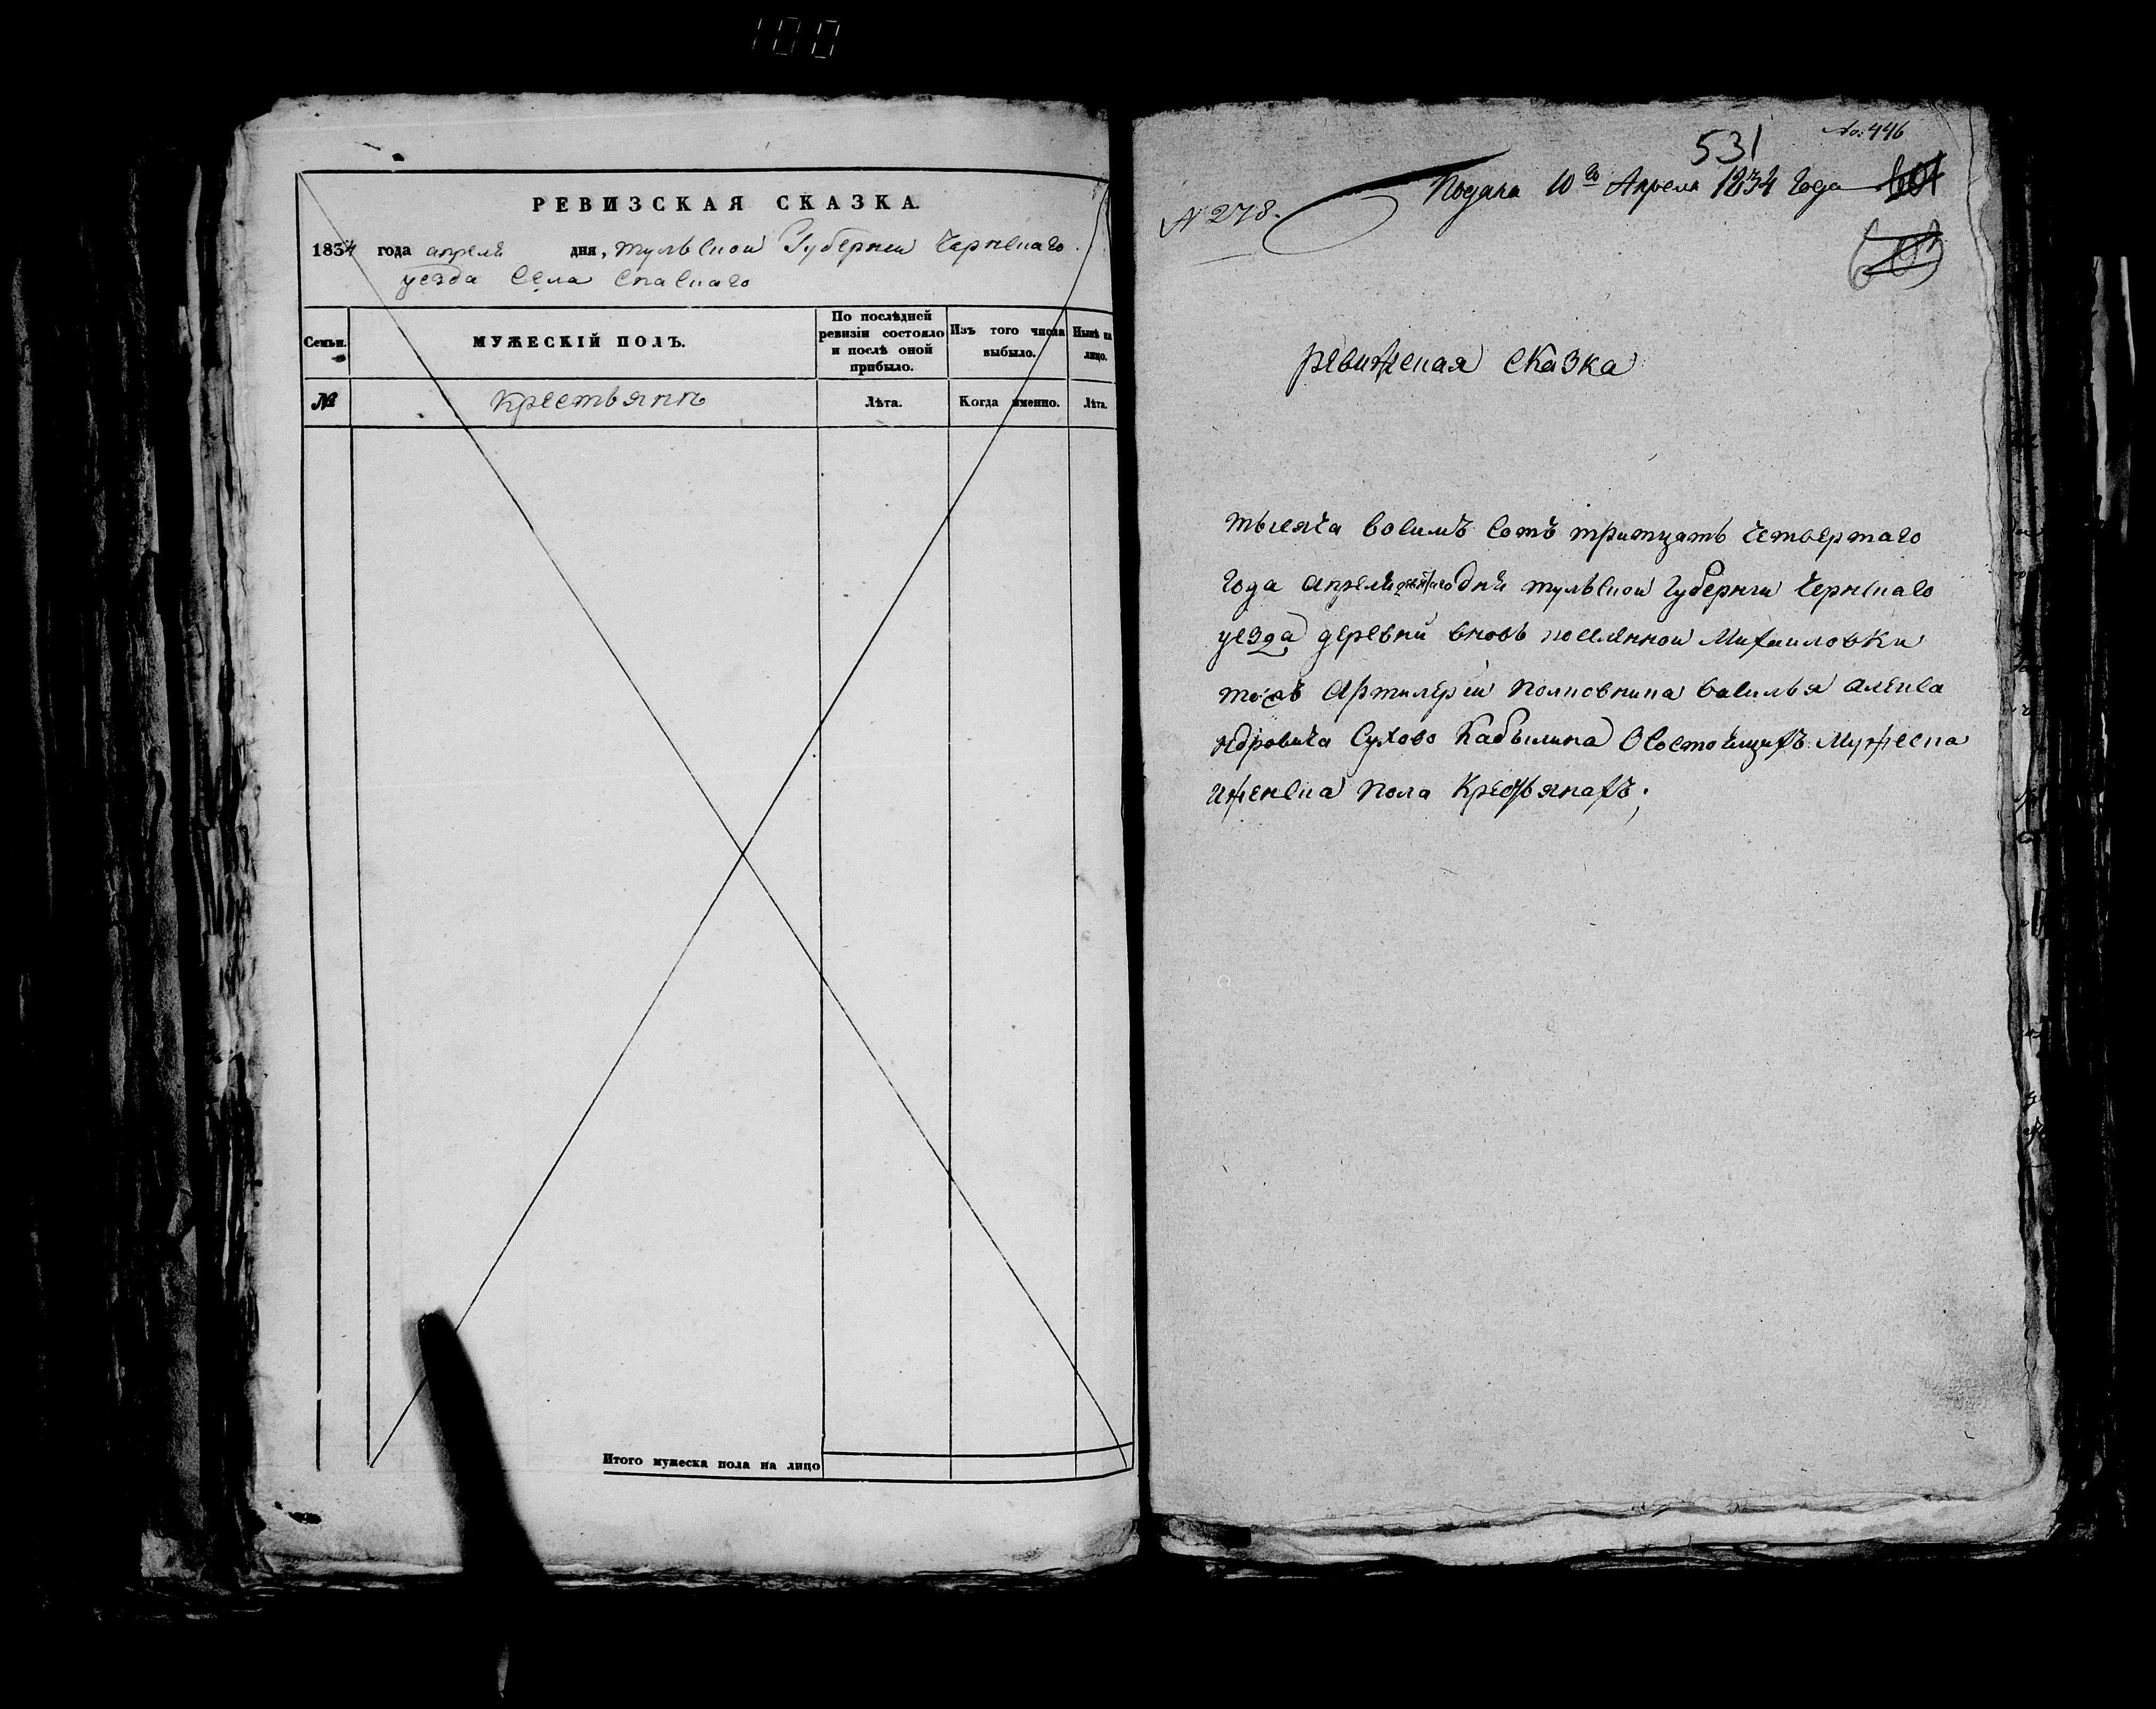 100
РЕВИЗСКАЯ СКАЗКА.
1834 года апреля дня, тульской Губернии Чернскаго
уезда Села Спаскаго
Семьи.
МУЖЕСКІЙ ПОЛЪ.
По послѣдней ревизіи состояло и послѣ оной прибыло.
Изъ того числа выбыло.
Нынѣ на лицо.
№
Крестьянъ
Лѣта.
Когда именно.
Лѣта.
Итого мужеска пола на лицо
No: 446
531
Подана 10го Апреля 1834 Года
N 278.
ревижская сказка
тысяча восимъ сотъ тритцать четвертаго
Года апреля дня тульской Губернии Чернскаго
уезда деревни вновь поселенной Михаиловки
тожъ Артилерии Полковника василья алекса
ндровича Сухово Кабылина О состоящихъ Мужеска
и женска пола Крестьянахъ;